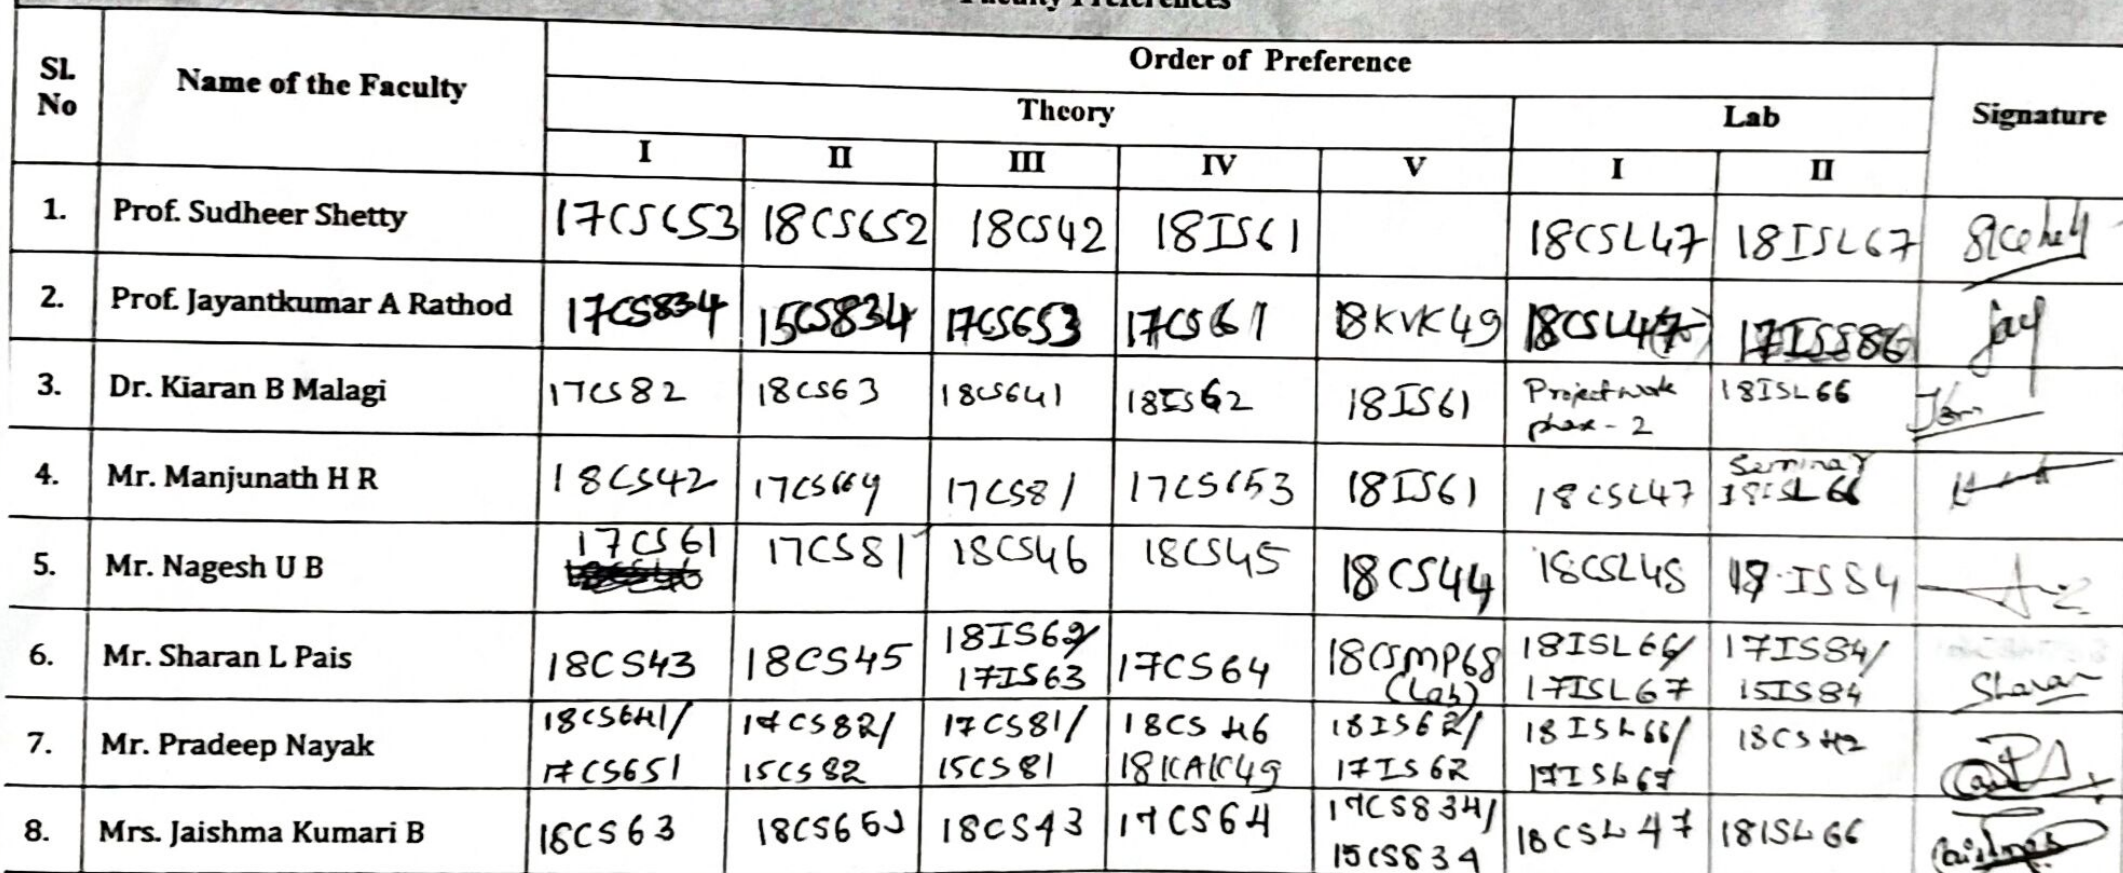 Faculty Preferences
SL No Name of the Faculty Order of Preference Signature
Theory Lab
I II III IV V I II
1. Prof. Sudheer Shetty 17CS653 18CS652 18CS42 18IS61 18CSL47 18ISL67
2. Prof. Jayantkumar A Rathod 17CS834 15CS834 17CS653 17CS61 18KVK49 18CSL47 17IS86 Jay
3. Dr. Kiaran B Malagi 17CS82 18CS63 18CS641 18IS62 18IS61 Project work phase - 2 18ISL66
4. Mr. Manjunath H R 18CS42 17CS664 17CS81 17CS653 18IS61 18CSL47 Seminar 18ISL66
5. Mr. Nagesh U B 17CS61 17CS81 18CS46 18CS45 18CS44 18CSL48 17IS84
6. Mr. Sharan L Pais 18CS43 18CS45 18IS62/ 17IS63 17CS64 18CSMP68 (Lab) 18ISL66/ 17ISL67 17IS84/ 15IS84 Sharan
7. Mr. Pradeep Nayak 18CS641/ 17CS651 17CS82/ 15CS82 17CS81/ 15CS81 18CS46 18KAK49 18IS62/ 17IS62 18ISL66/ 17ISL67 18CS42
8. Mrs. Jaishma Kumari B 18CS63 18CS653 18CS43 17CS64 17CS834/ 15CS834 18CSL47 18ISL66